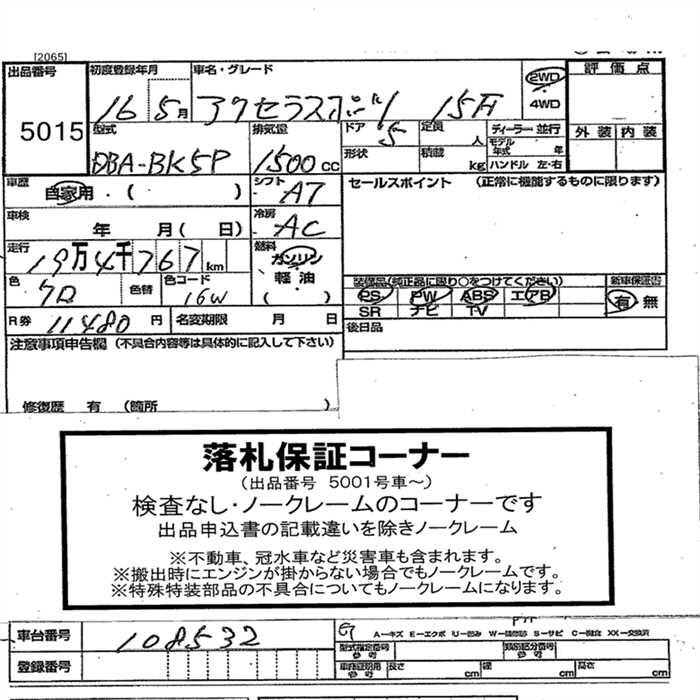 [2065]
出品番号 初度登録年月 車名・グレード 2WD 評価点
5015 16 5月 アクセラスポーツ 15F 4WD
型式 排気量 ドア 定員 ディーラー 並行 外装 内装
DBA-BK5P 1500 cc 5 人 モデル年式 年
形状 積載 kg ハンドル 左・右
車歴 シフト セールスポイント (正常に機能するものに限ります)
自家用・( ) AT
車検 冷房
年 月( 日) AC
走行 燃料
19万4千767km ガソリン
色 色替 色コード 軽油 装備品(純正品に限り○をつけてください) 新車保証書
クロ 16W ( ) PS PW ABS エアB 有 無
SR ナビ TV
R券 11480 円 名変期限 月 日 後日品
注意事項申告欄 (不具合内容等は具体的に記入して下さい)
修復歴 有 (箇所 )
落札保証コーナー
(出品番号 5001号車～)
検査なし・ノークレームのコーナーです
出品申込書の記載違いを除きノークレーム
※不動車、冠水車など災害車も含まれます。
※搬出時にエンジンが掛からない場合でもノークレームです。
※特殊特装部品の不具合についてもノークレームになります。
車台番号 108532 A－キズ E－エクボ U－凹み W－補修跡 S－サビ C－腐食 XX－交換済
型式指定番号 参考 類別区分番号 参考
登録番号 車両証明用 参考 長さ cm 幅 cm 高さ cm